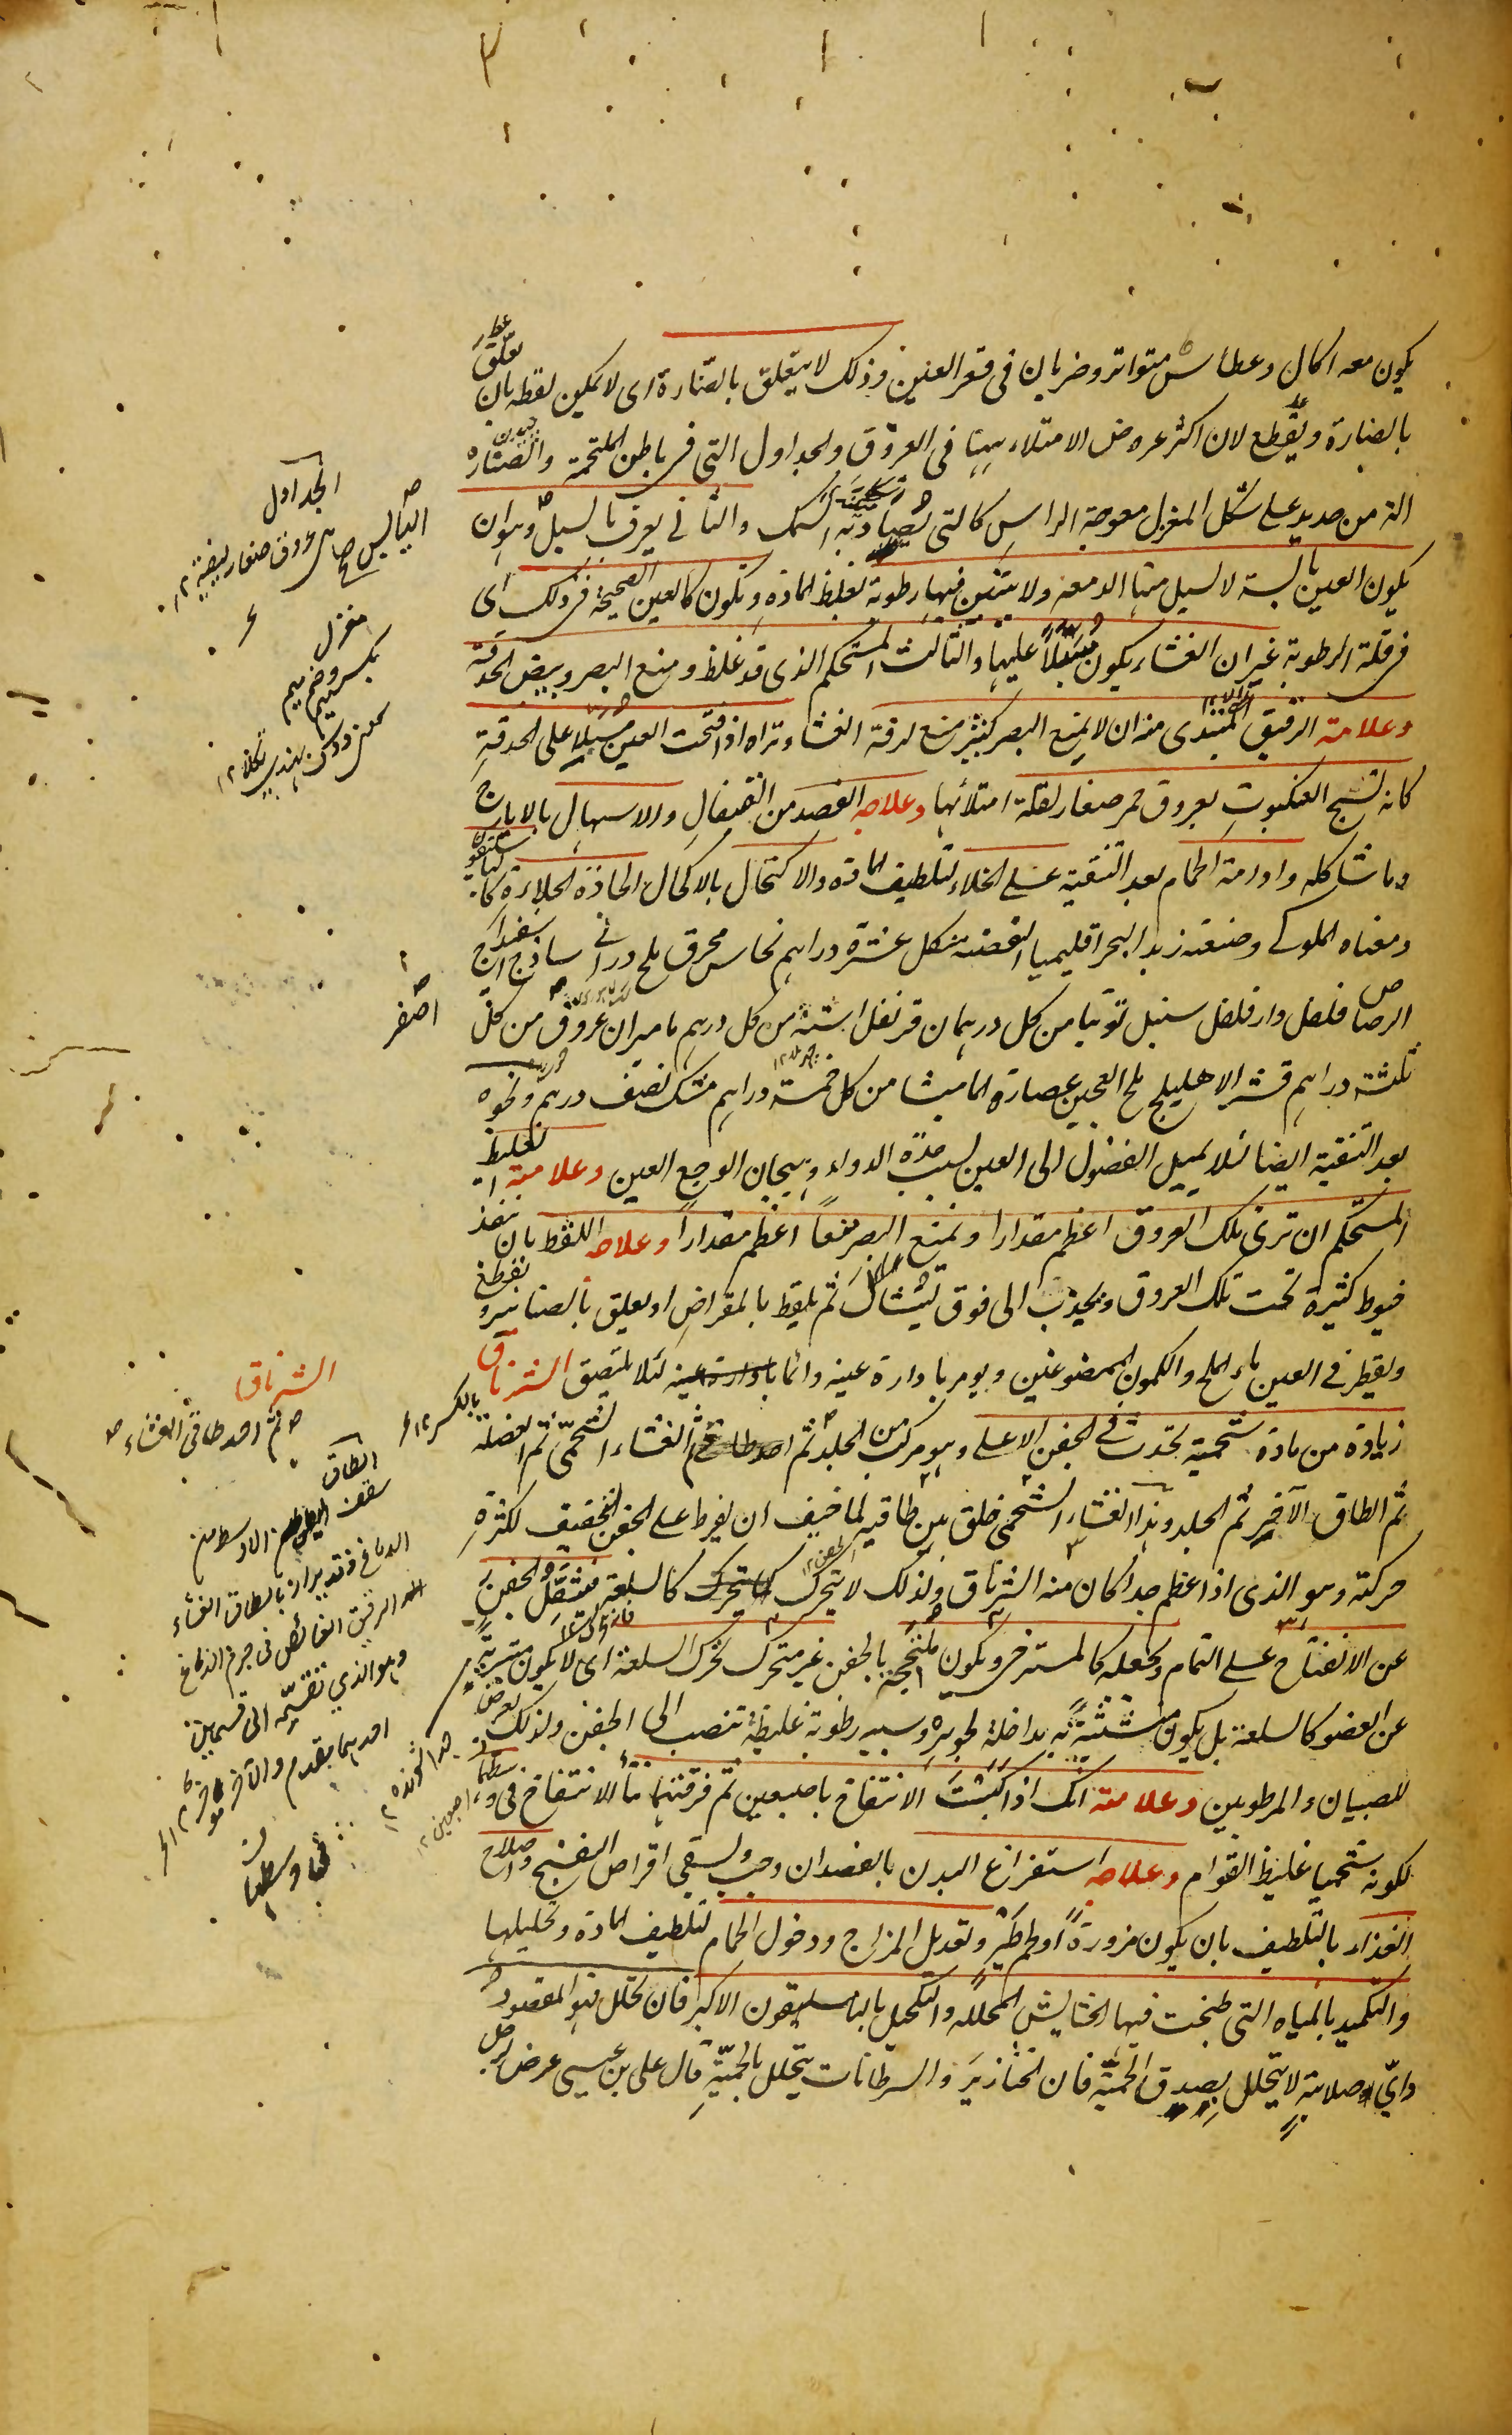 يكون معه اكال وعطاس متواتر وضربان فى قعر العينين وذلك لا يتعلق بالصنارة اى لا يمكن لقطه بان تعلق
بالصنارة ويقطع لان اكثر عروض الامتلاء ههنا فى العروق والجداول التى فى باطن الملتحمة والصنارة
الة من حديد على شكل المغزل معوجة الراس كالتى يصاد به السمك والثانى يعرف بالسبل وهو ان
يكون العين يابسة لا يسيل منها الدمعة ولا يتبين فيها رطوبة لغلظ المادة وتكون كالعين الصحيحة فى ذلك اى
فى قلة الرطوبة غير ان الغشاء يكون مسبلا عليها والثالث المستحكم الذى قد غلظ ومنع البصر وبيض الحدقة
وعلامة الرقيق المبتدى منه ان لا يمنع البصر كثير منع لرقة الغشاء وتراه اذا فتحت العين مسبلا على الحدقة
كانه نسج العنكبوت بعروق حمر صغار لقلة امتلائها وعلاجه الفصد من القيفال والاسهال بالايارج
وما شاكله وادامة الحمام بعد التنقية على الخلاء لتلطيف المادة والاكتحال بالاكحال الحادة الجلاءة كالباسليقون
ومعناه الملوكى وصنعته زبد البحر اقليميا الفضة من كل عشرة دراهم نحاس محرق ملح درانى ساذج اسفيداج
الرصاص فلفل دارفلفل سنبل توتيا من كل درهمان قرنفل اشنه من كل درهم ماميران عروق من كل
ثلثة دراهم قشر الاهليلج ملح العجين عصارة الماميثا من كل خمسة دراهم مشك نصف درهم ونحوه
بعد التنقية ايضا لئلا يميل الفضول الى العين بسبب حدة الدواء وهيجان الوجع العين وعلامة الغليظ
المستحكم ان ترى تلك العروق اعظم مقدارا ويمنع البصر منعا اعظم مقدارا وعلاجه اللقط بان ينفذ
خيوط كثيرة تحت تلك العروق ويجذب الى فوق لتشال ثم يلقط بالمقراض او يعلق بالصنانير ويقطع
ويقطر فى العين ماء الملح والكمون الممضوغين ويومر بادارة عينه دائما لئلا يلتصق الشرناق
زيادة من مادة شحمية تحدث فى الجفن الاعلى وهو مركب من الجلد ثم الغشاء الشحمى ثم العضلة
ثم الطاق الآخر ثم الجلد وهذا الغشاء الشحمى خلق بين طاقيه لما خيف ان يفرط على الجفن التجفيف لكثرة
حركته وهو الذى اذا عظم جدا كان منه الشرناق ولذلك لا يتحرك كالسلعة فتثقل الجفن
عن الانفتاح على التمام ويجعله كالمسترخى ويكون ملتحجة بالجفن غير متحرك تحرك السلعة اى لا يكون متبرية
عن العضو كالسلعة بل يكون متشبثة به بداخله لجوهره وسببه رطوبة غليظة تنصب الى الجفن ولذلك يعرض
للصبيان والمرطوبين وعلامته انك اذا كبست الانتفاخ باصبعين ثم فرقتهما نتأ الانتفاخ فى وسطها
لكونه شحميا غليظ القوام وعلاجه استفراغ البدن بالفصد ان وجب ويسقى اقراص البنفسج واصلاح
الغذاء بالتلطيف بان يكون مزورة او لحم طير وتعديل المزاج ودخول الحمام لتلطيف المادة وتحليلها
والتكميد بالمياه التى طبخت فيها الحشايش المحللة والتكحيل بالباسليقون الاكبر فان تحلل فهو المقصود
واى صلابة لا يتحلل بصدق الحمية فان الخنازير والسرطانات يتحلل بالحمية قال على بن عيسى عرض لرجل
الجداول
عروق صغار ليفية ١٢
مغزل
بكسر ميم وضم ميم
اصفر
الشرناق
ثم احد طاقى الغشاء
بالكسر ١٢
الطاق
سقف
الدماغ وقد يراد بالطاق الغشاء
الرقيق الغائص فى جرم الدماغ
وهو الذى تقسمه الى قسمين
احدهما مقدم والآخر مؤخر
فى وسطها